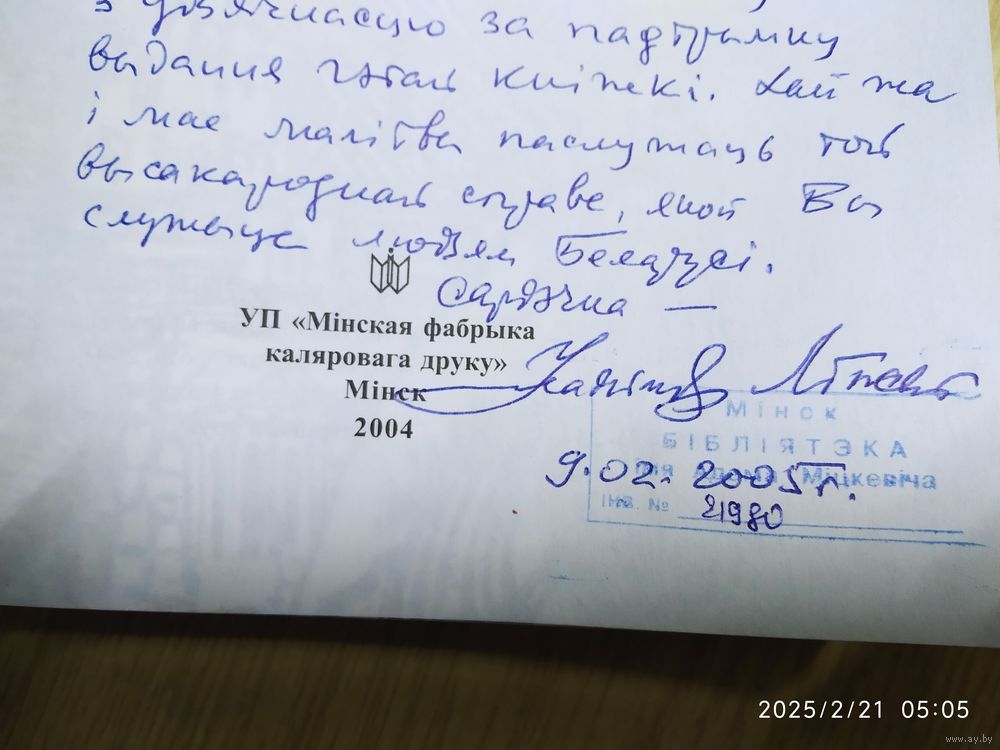 з удзячнасцю за падтрымку
выдання гэтай кніжкі. Хай жа
і мае малітвы паслужаць той
высакароднай справе, якой Вы
служыце людзям Беларусі.
Сардэчна —
УП «Мінская фабрыка
каляровага друку»
Мінск
2004
Ліпскі
МІНСК
БІБЛІЯТЭКА
імя Адама Міцкевіча
9.02.2005 г.
Інв. № 21980
2025/2/21 05:05
www.ay.by